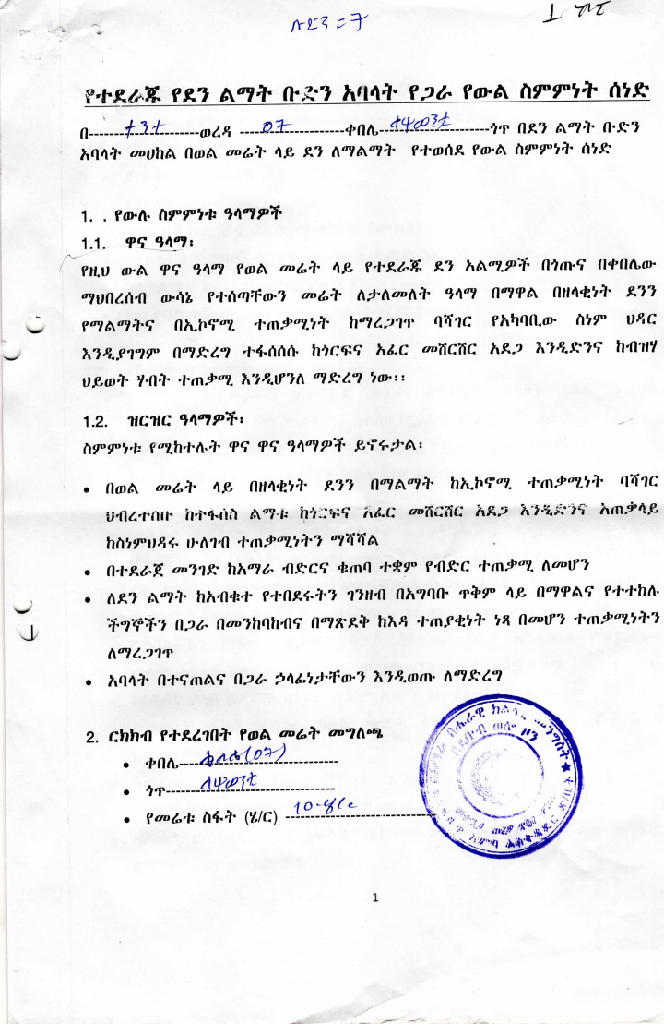 የተደራጁ የደን ልማት ቡድን አባላት የጋራ የውል ስምምነት ሰነድ
በ----------------------ወረዳ ---07---------------ቀበሌ----------------------ጎጥ በደን ልማት ቡድን
አባላት መሀከል በወል መሬት ላይ ደን ለማልማት የተወሰደ የውል ስምምነት ሰነድ
1. . የውሉ ስምምነቱ ዓላማዎች
1.1. ዋና ዓላማ፡
የዚህ ውል ዋና ዓላማ የወል መሬት ላይ የተደራጁ ደን አልሚዎች በጎጡና በቀበሌው
ማህበረሰብ ውሳኔ የተሰጣቸውን መሬት ለታለመለት ዓላማ በማዋል በዘላቂነት ደንን
የማልማትና በኢኮኖሚ ተጠቃሚነት ከማረጋገጥ ባሻገር የአካባቢው ስነም ህዳር
እንዲያገግም በማድረግ ተፋሰሱ ከጎርፍና አፈር መሸርሸር አደጋ እንዲድንና ከብዝሃ
ህይወት ሃብት ተጠቃሚ እንዲሆንለ ማድረግ ነው፡፡
1.2. ዝርዝር ዓላማዎች፡
ስምምነቱ የሚከተሉት ዋና ዋና ዓላማዎች ይኖሩታል፡
• በወል መሬት ላይ በዘላቂነት ደንን በማልማት ከኢኮኖሚ ተጠቃሚነት ባሻገር
ህብረተሰቡ ከተፋሰስ ልማቱ ከጎርፍና አፈር መሸርሸር አደጋ እንዲድንና አጠቃላይ
ከስነምህዳሩ ሁለገብ ተጠቃሚነትን ማሻሻል
• በተደራጀ መንገድ ከአማራ ብድርና ቁጠባ ተቋም የብድር ተጠቃሚ ለመሆን
• ለደን ልማት ከአብቁተ የተበደሩትን ገንዘብ በአግባቡ ጥቅም ላይ በማዋልና የተተከሉ
ችግኞችን በጋራ በመንከባከብና በማጽደቅ ከእዳ ተጠያቂነት ነጻ በመሆን ተጠቃሚነትን
ለማረጋገጥ
• አባላት በተናጠልና በጋራ ኃላፊነታቸውን እንዲወጡ ለማድረግ
2. ርክክብ የተደረገበት የወል መሬት መግለጫ
• ቀበሌ---(07)--------
• ጎጥ------------------------
• የመሬቱ ስፋት (ሄ/ር) ----------------------
1